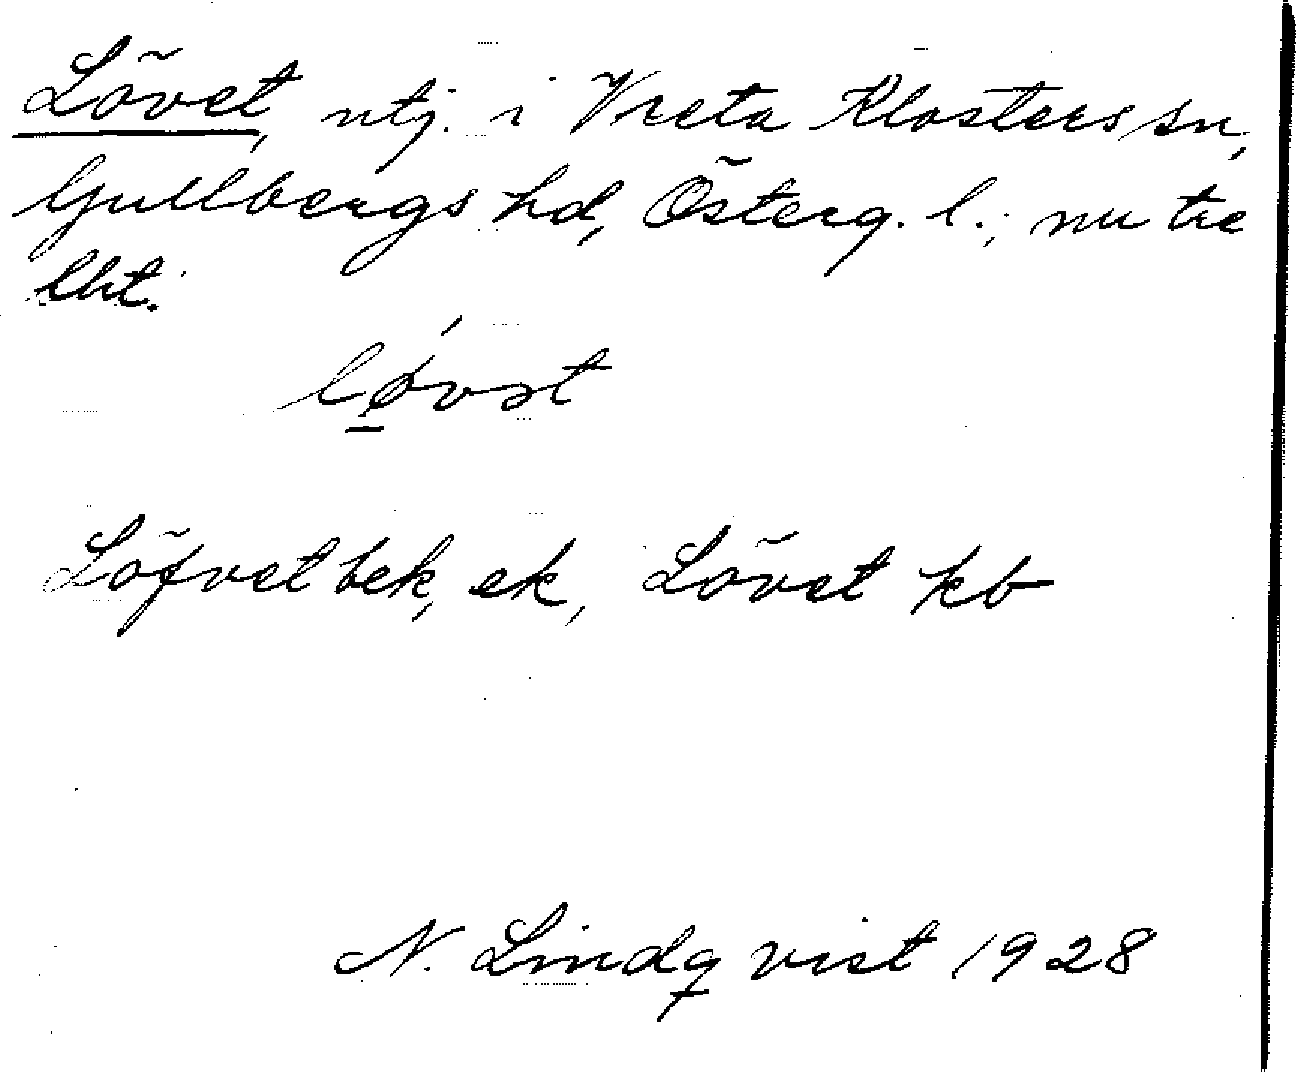 Lövet, utj. i Vreta Klosters sn,
Gullbergs hd, Österg. l.; nu tre
lht.
lǿ̱vət
Löfvet bek, ek, Lövet kb
N. Lindqvist 1928